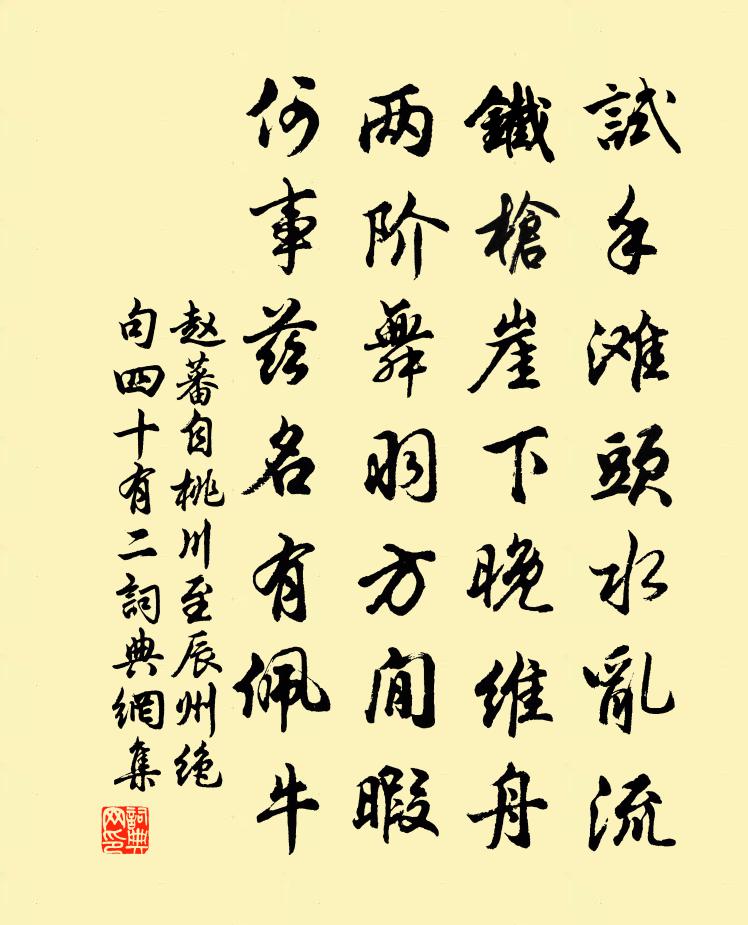 試手滩頭水亂流
鐵槍崖下晚维舟
两阶舞羽方间暇
何事兹名有佩牛
赵蕃自桃川至辰州绝
句四十有二詞典網集
詞典网印